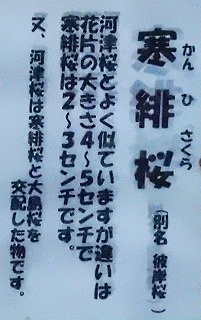 寒緋桜
かん ひ さくら
(別名 彼岸桜)
河津桜とよく似ていますが違いは
花片の大きさ4~5センチで
寒緋桜は2~3センチです。
又、河津桜は寒緋桜と大島桜を
交配した物です。